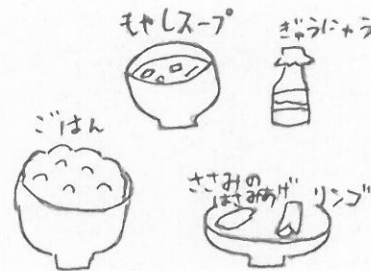 もやしスープ
ぎゅうにゅう
ごはん
ささみの
はさみあげ
リンゴ